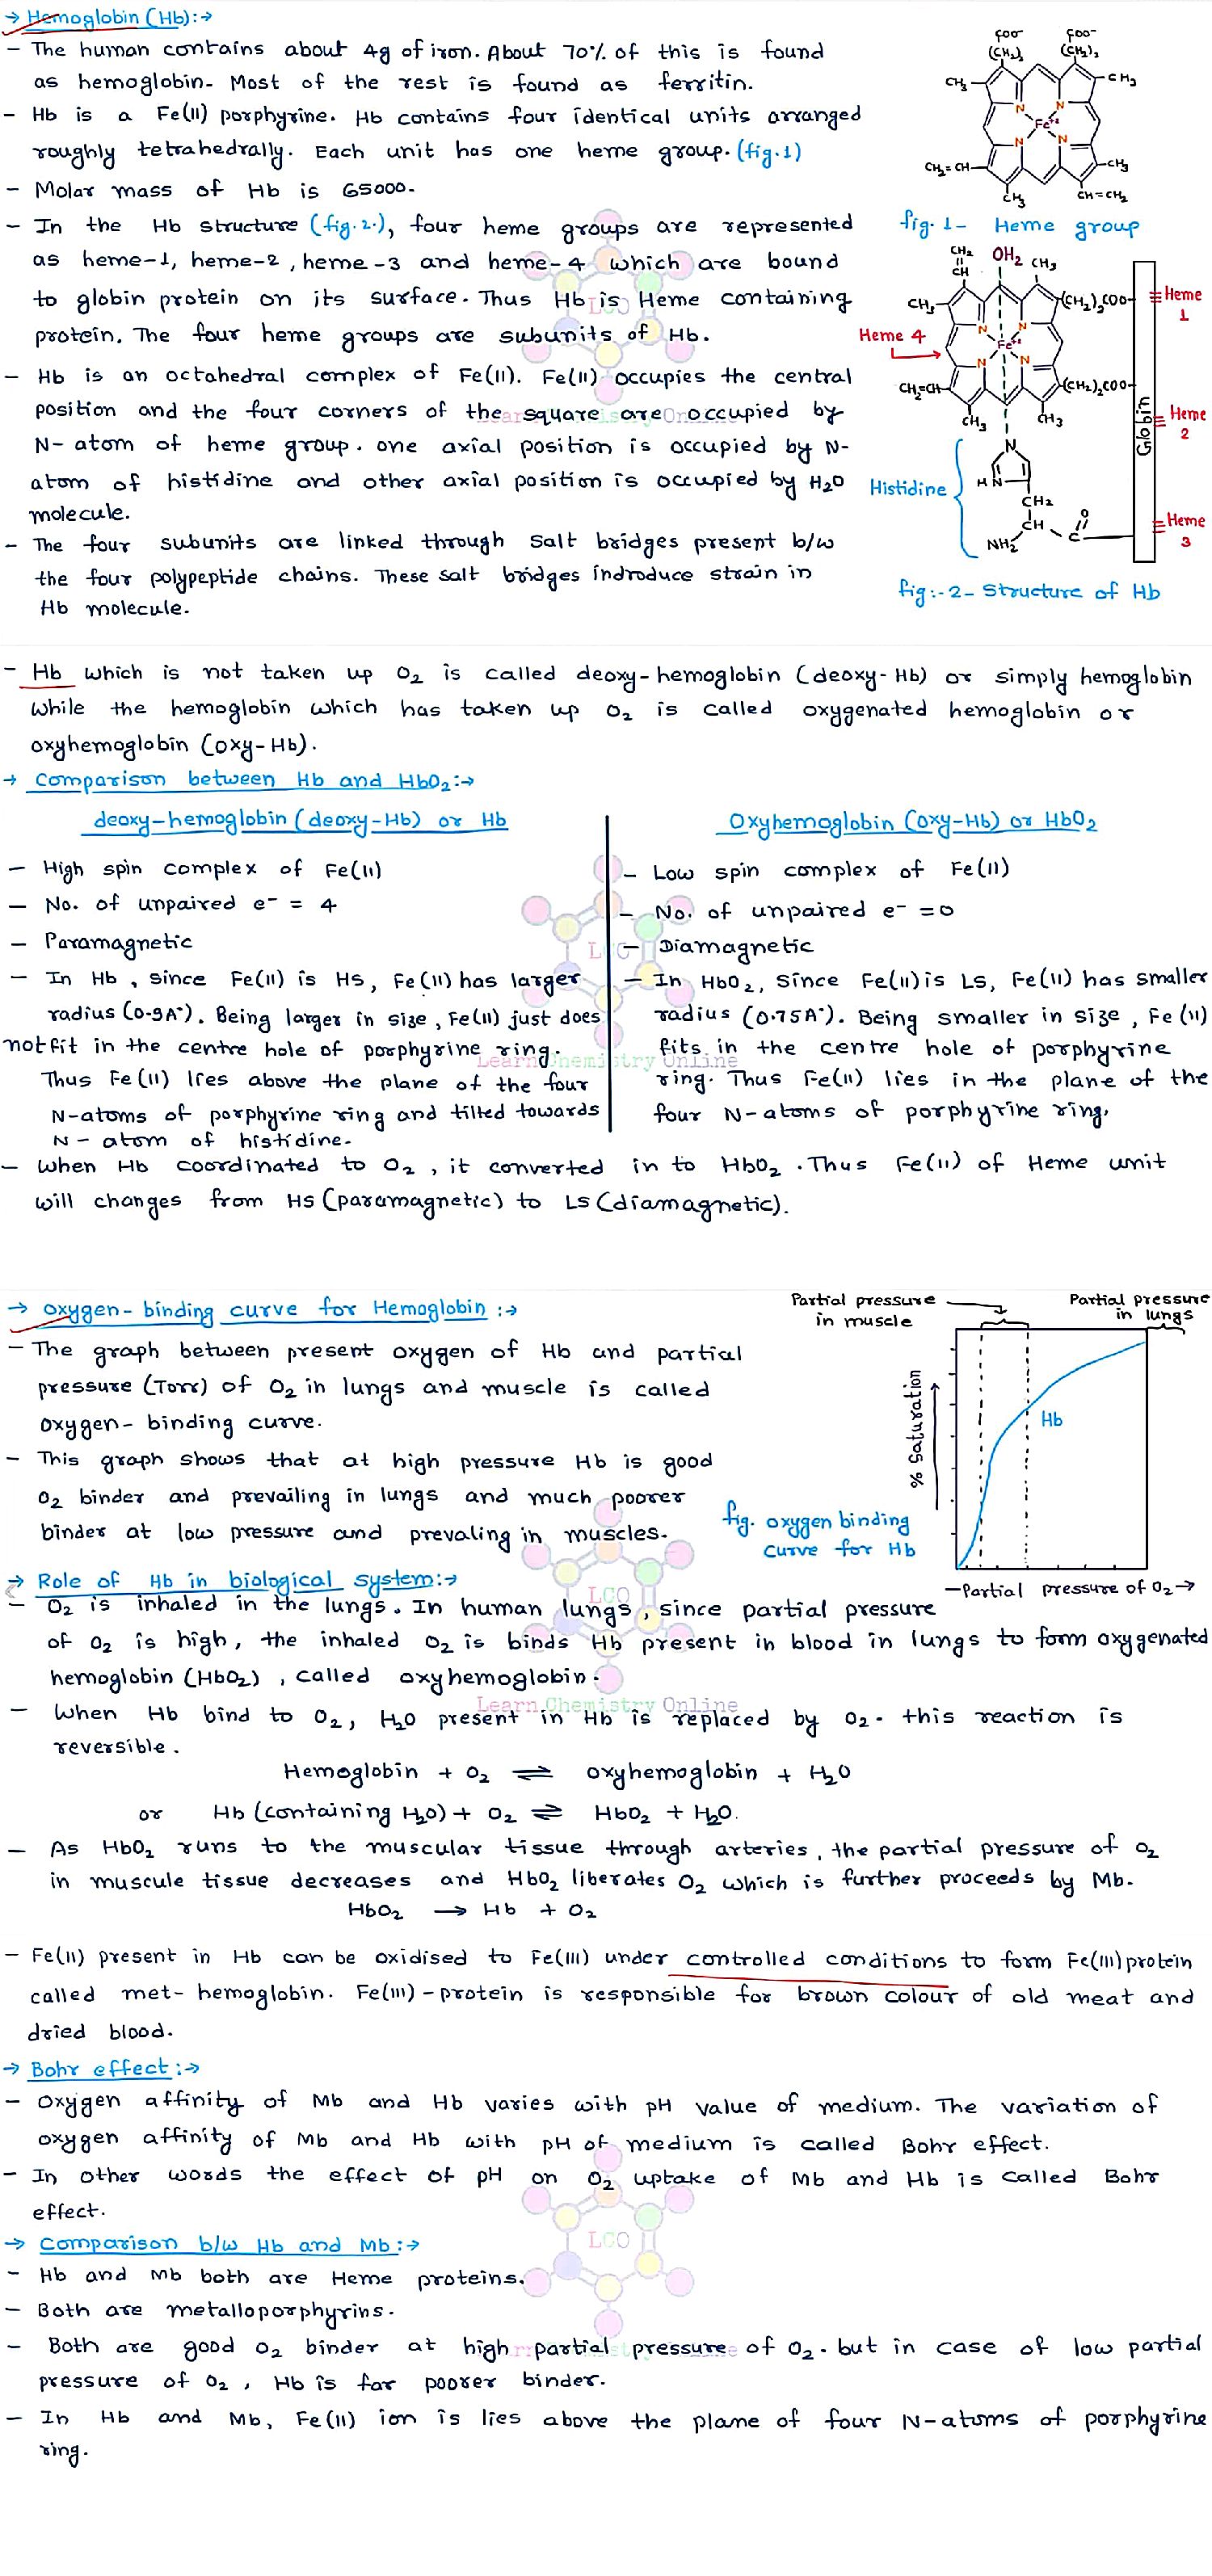 → Hemoglobin (Hb):→
- The human contains about 4g of iron. About 70% of this is found
as hemoglobin. Most of the rest is found as ferritin.
- Hb is a Fe(II) porphyrine. Hb contains four identical units arranged
roughly tetrahedrally. Each unit has one heme group. (fig.1)
- Molar mass of Hb is 65000.
- In the Hb structure (fig.2.), four heme groups are represented
as heme-1, heme-2, heme-3 and heme-4 which are bound
to globin protein on its surface. Thus Hb is Heme containing
protein. The four heme groups are subunits of Hb.
- Hb is an octahedral complex of Fe(II). Fe(II) occupies the central
position and the four corners of the square are occupied by
N-atom of heme group. one axial position is occupied by N-
atom of histidine and other axial position is occupied by H₂O
molecule.
- The four subunits are linked through salt bridges present b/w
the four polypeptide chains. These salt bridges indroduce strain in
Hb molecule.
COO⁻ COO⁻
(CH₂)₂ (CH₂)₂
CH₃ CH₃
N N
Fe⁺²
N N
CH₂=CH CH₃
CH₃ CH=CH₂
fig. 1- Heme group
CH₂
CH OH₂ CH₃
CH₃ (CH₂)₂COO Heme
1
N N
Heme 4 Fe⁺²
N N
CH₂=CH (CH₂)₂COO
CH₃ CH₃
Globin
Heme
2
N
HN
Histidine
CH₂
CH O
NH₂ C
Heme
3
fig:-2- Structure of Hb
- Hb which is not taken up O₂ is called deoxy-hemoglobin (deoxy-Hb) or simply hemoglobin
while the hemoglobin which has taken up O₂ is called oxygenated hemoglobin or
oxyhemoglobin (oxy-Hb).
→ Comparison between Hb and HbO₂:→
deoxy-hemoglobin (deoxy-Hb) or Hb
- High spin complex of Fe(II)
- No. of unpaired e⁻ = 4
- Paramagnetic
- In Hb, since Fe(II) is HS, Fe(II) has larger
radius (0.9A°). Being larger in size, Fe(II) just does
not fit in the centre hole of porphyrine ring.
Thus Fe(II) lies above the plane of the four
N-atoms of porphyrine ring and tilted towards
N-atom of histidine.
Oxyhemoglobin (oxy-Hb) or HbO₂
- Low spin complex of Fe(II)
- No. of unpaired e⁻ =0
- Diamagnetic
- In HbO₂, Since Fe(II) is LS, Fe(II) has smaller
radius (0.75A°). Being smaller in size, Fe(II)
fits in the centre hole of porphyrine
ring. Thus Fe(II) lies in the plane of the
four N-atoms of porphyrine ring.
- When Hb coordinated to O₂, it converted in to HbO₂. Thus Fe(II) of Heme unit
will changes from HS (paramagnetic) to LS (diamagnetic).
→ oxygen-binding curve for Hemoglobin :→
- The graph between present oxygen of Hb and partial
pressure (Torr) of O₂ in lungs and muscle is called
oxygen-binding curve.
- This graph shows that at high pressure Hb is good
O₂ binder and prevailing in lungs and much poorer
binder at low pressure and prevaling in muscles.
Partial pressure
in muscle
Partial pressure
in lungs
% Saturation →
Hb
fig. oxygen binding
curve for Hb
—Partial pressure of O₂→
→ Role of Hb in biological system:→
- O₂ is inhaled in the lungs. In human lungs, since partial pressure
of O₂ is high, the inhaled O₂ is binds Hb present in blood in lungs to form oxygenated
hemoglobin (HbO₂), called oxyhemoglobin.
- When Hb bind to O₂, H₂O present in Hb is replaced by O₂. this reaction is
reversible.
Hemoglobin + O₂ ⇌ oxyhemoglobin + H₂O
or Hb (containing H₂O) + O₂ ⇌ HbO₂ + H₂O.
- As HbO₂ runs to the muscular tissue through arteries, the partial pressure of O₂
in muscule tissue decreases and HbO₂ liberates O₂ which is further proceeds by Mb.
HbO₂ → Hb + O₂
- Fe(II) present in Hb can be oxidised to Fe(III) under controlled conditions to form Fe(III) protein
called met-hemoglobin. Fe(III)-protein is responsible for brown colour of old meat and
dried blood.
→ Bohr effect:→
- Oxygen affinity of Mb and Hb varies with pH value of medium. The variation of
oxygen affinity of Mb and Hb with pH of medium is called Bohr effect.
- In other words the effect of pH on O₂ uptake of Mb and Hb is called Bohr
effect.
→ Comparison b/w Hb and Mb:→
- Hb and Mb both are Heme proteins.
- Both are metalloporphyrins.
- Both are good O₂ binder at high partial pressure of O₂. but in case of low partial
pressure of O₂, Hb is far poorer binder.
- In Hb and Mb, Fe(II) ion is lies above the plane of four N-atoms of porphyrine
ring.
LCO
Learn Chemistry Online